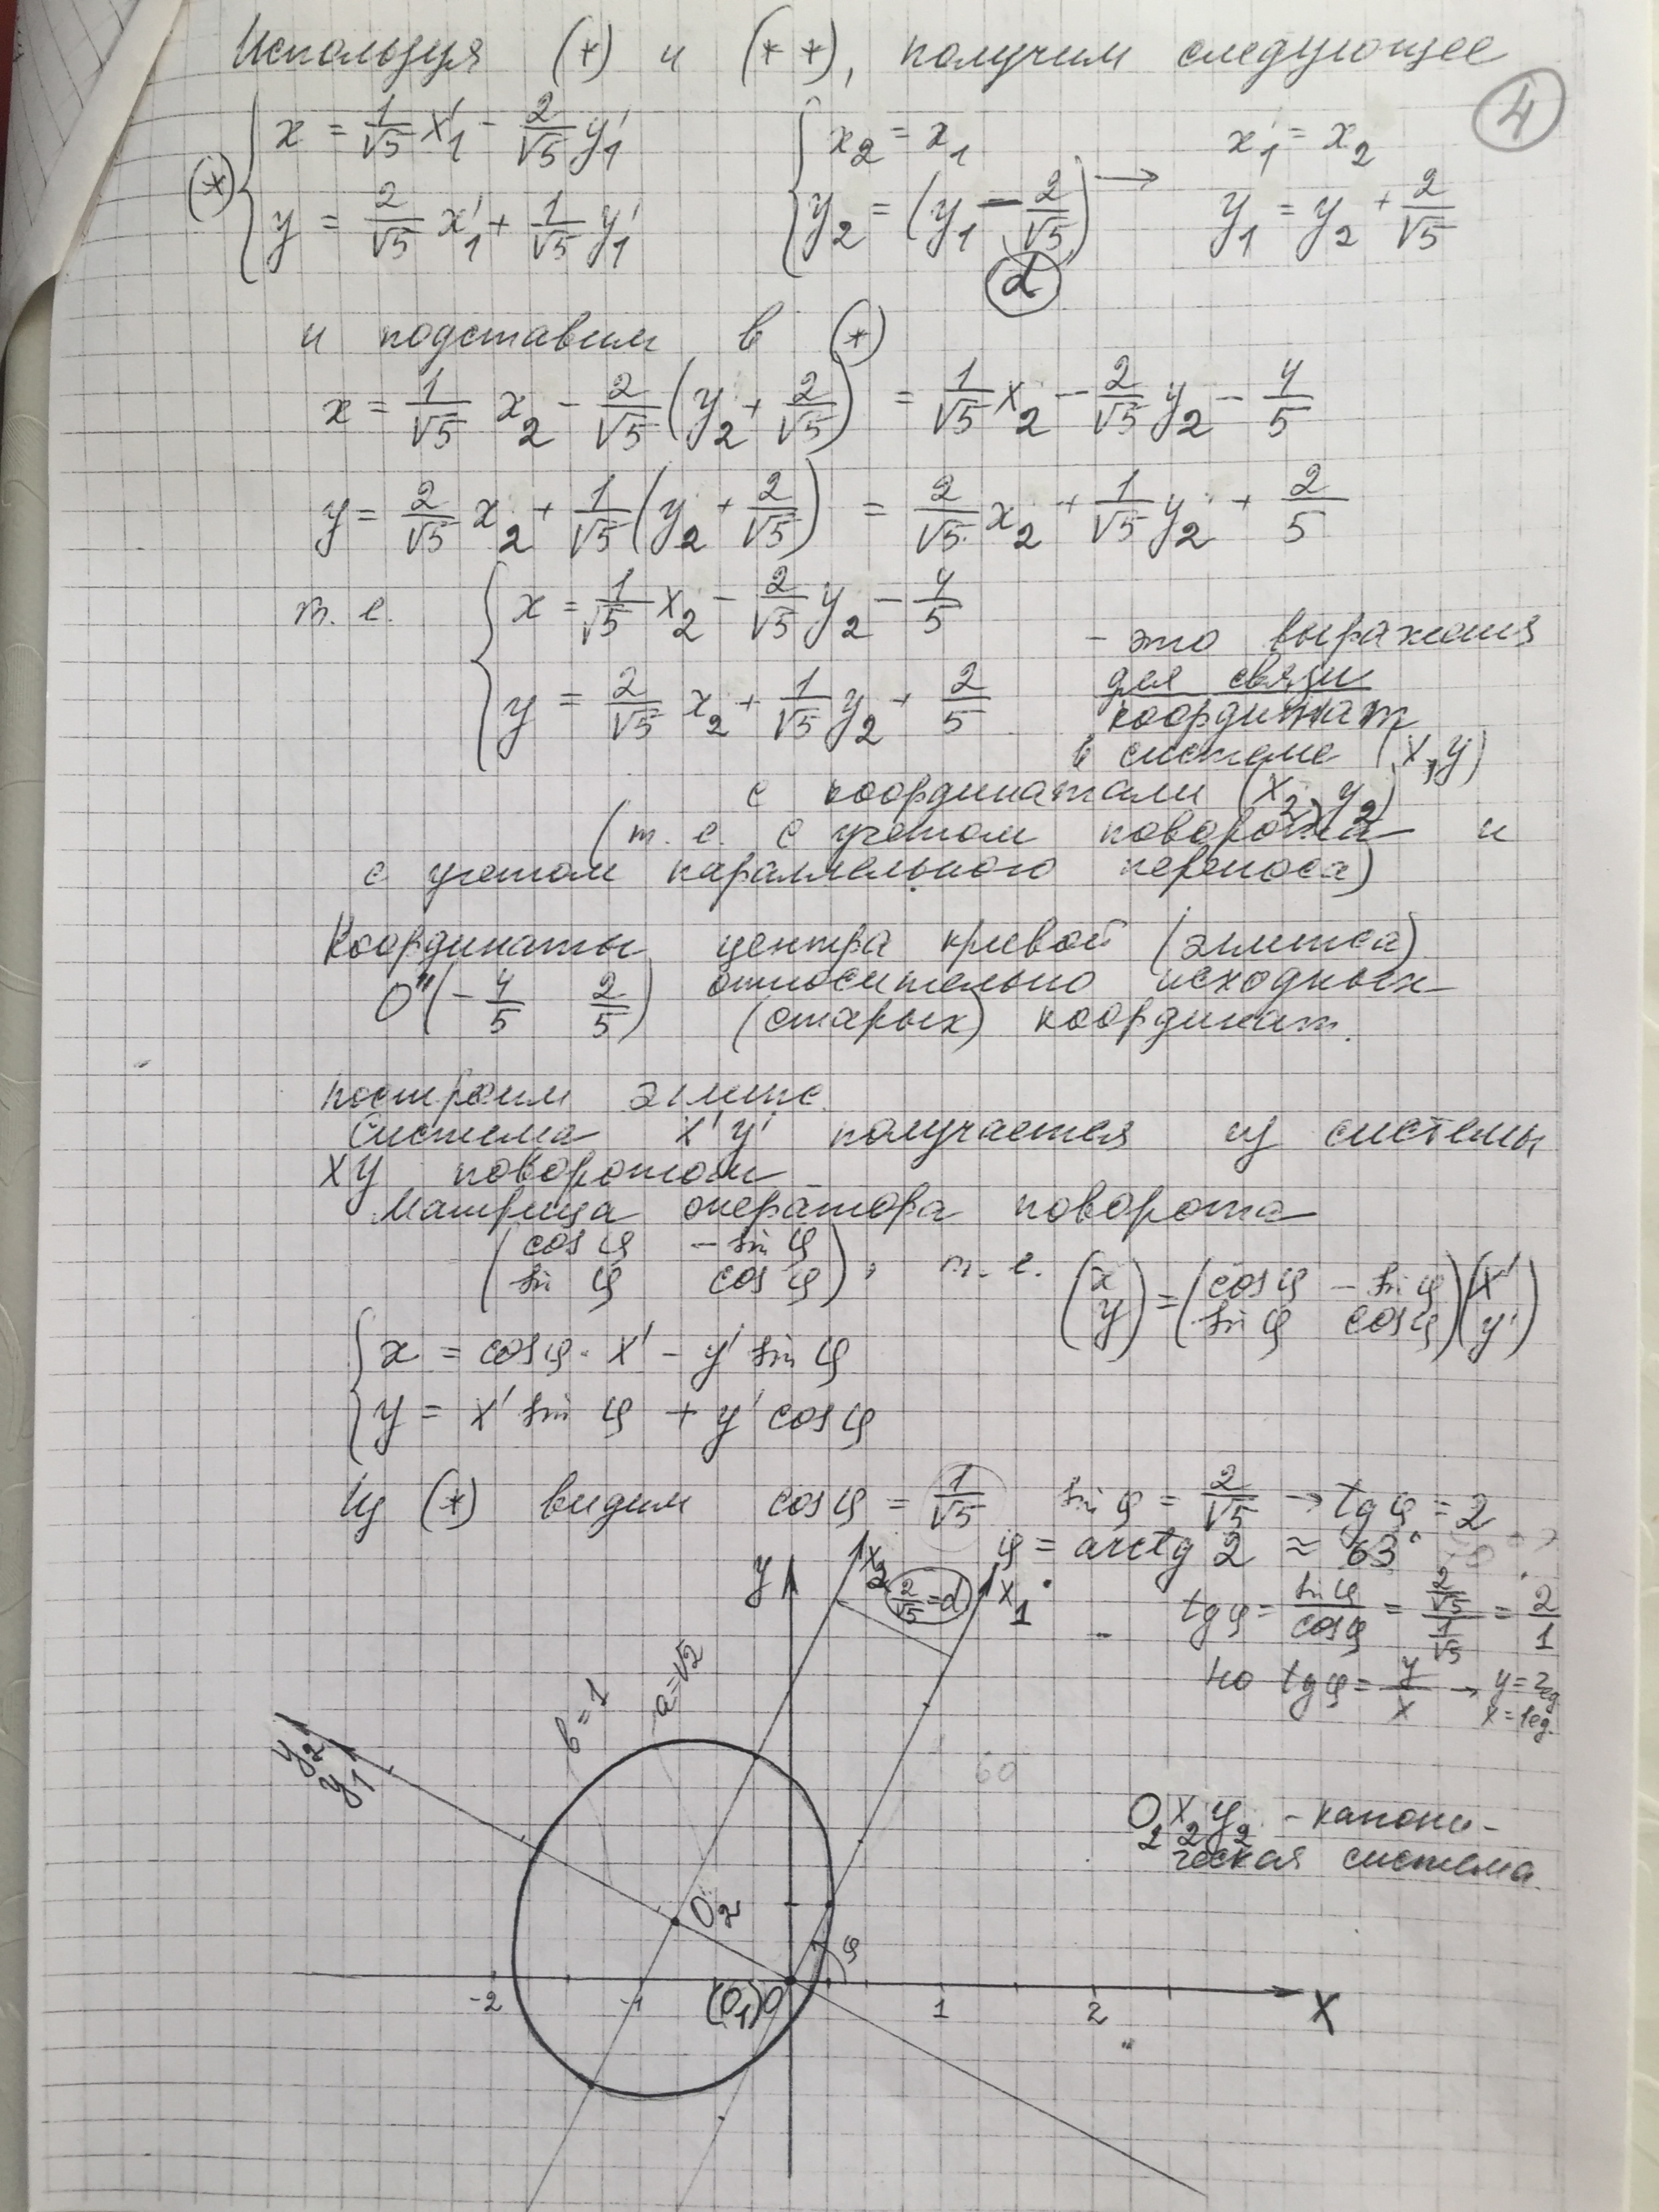 Используя (*) и (**), получим следующее
④
(*) { x = 1/√5 x'₁ - 2/√5 y'₁
y = 2/√5 x'₁ + 1/√5 y'₁
{ x₂ = x₁
y₂ = (y₁ - 2/√5) →
d
x'₁ = x₂
y₁ = y₂ + 2/√5
и подставим в (*)
x = 1/√5 x₂ - 2/√5 (y₂ + 2/√5) = 1/√5 x₂ - 2/√5 y₂ - 4/5
y = 2/√5 x₂ + 1/√5 (y₂ + 2/√5) = 2/√5 x₂ + 1/√5 y₂ + 2/5
т. е. { x = 1/√5 x₂ - 2/√5 y₂ - 4/5
y = 2/√5 x₂ + 1/√5 y₂ + 2/5
- это выражения
для связи
координат
в системе (x, y)
с координатами (x₂, y₂)
(т. е. с учетом поворота и
с учетом параллельного переноса)
Координаты центра кривой (эллипса)
O''(-4/5 2/5) относительно исходных
(старых) координат.
построим эллипс.
Система x'y' получается из системы
XY поворотом
Матрица оператора поворота
(cos φ - sin φ
sin φ cos φ), т. е. (x y) = (cos φ - sin φ sin φ cos φ)(x' y')
{ x = cos φ · x' - y' sin φ
y = x' sin φ + y' cos φ
Из (*) видим cos φ = 1/√5 sin φ = 2/√5 → tg φ = 2
φ = arctg 2 ≈ 63°
tg φ = sin φ / cos φ = 2/√5 / 1/√5 = 2/1
но tg φ = y/x → y = 2ед
x = 1ед.
y
x₂
2/√5 = d
x₁
b = 1
a = √2
y₂
y₁
60
O₂x₂y₂ - канони-
ческая система.
O₂
φ
-2
-1
(O₁) O
1
2
X